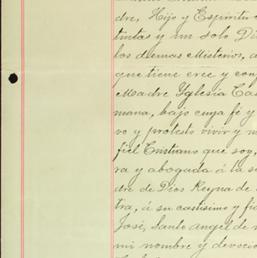 dre, Hijo y Espiritu
tintas y un solo Di
los demas Misterios, a
que tiene cree y con
Madre Yglesia Ca
mana, bajo cuya fé y
vo y protesto vivir y m
fiel Cristiano que soy,
ra y abogada á la s
dre de Dios Reyna de
tra, á su castisimo y fi
José, Santo Angel de
mi nombre y devocio